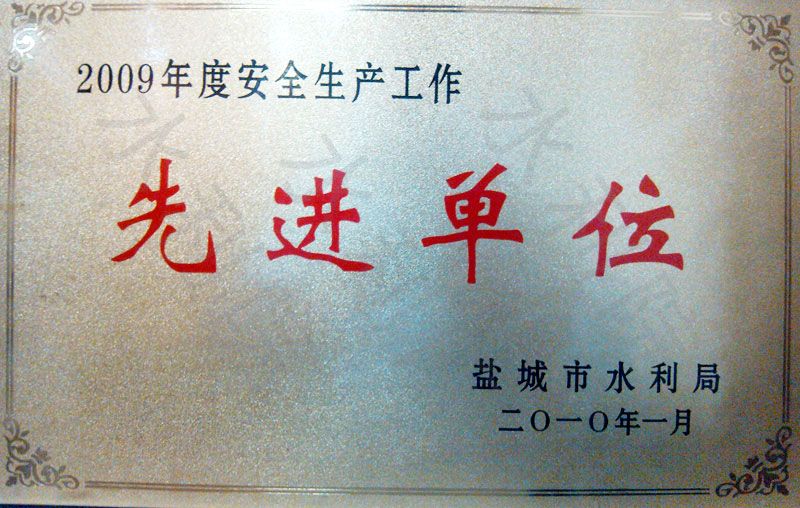 2009年度安全生产工作
先进单位
盐城市水利局
二〇一〇年一月